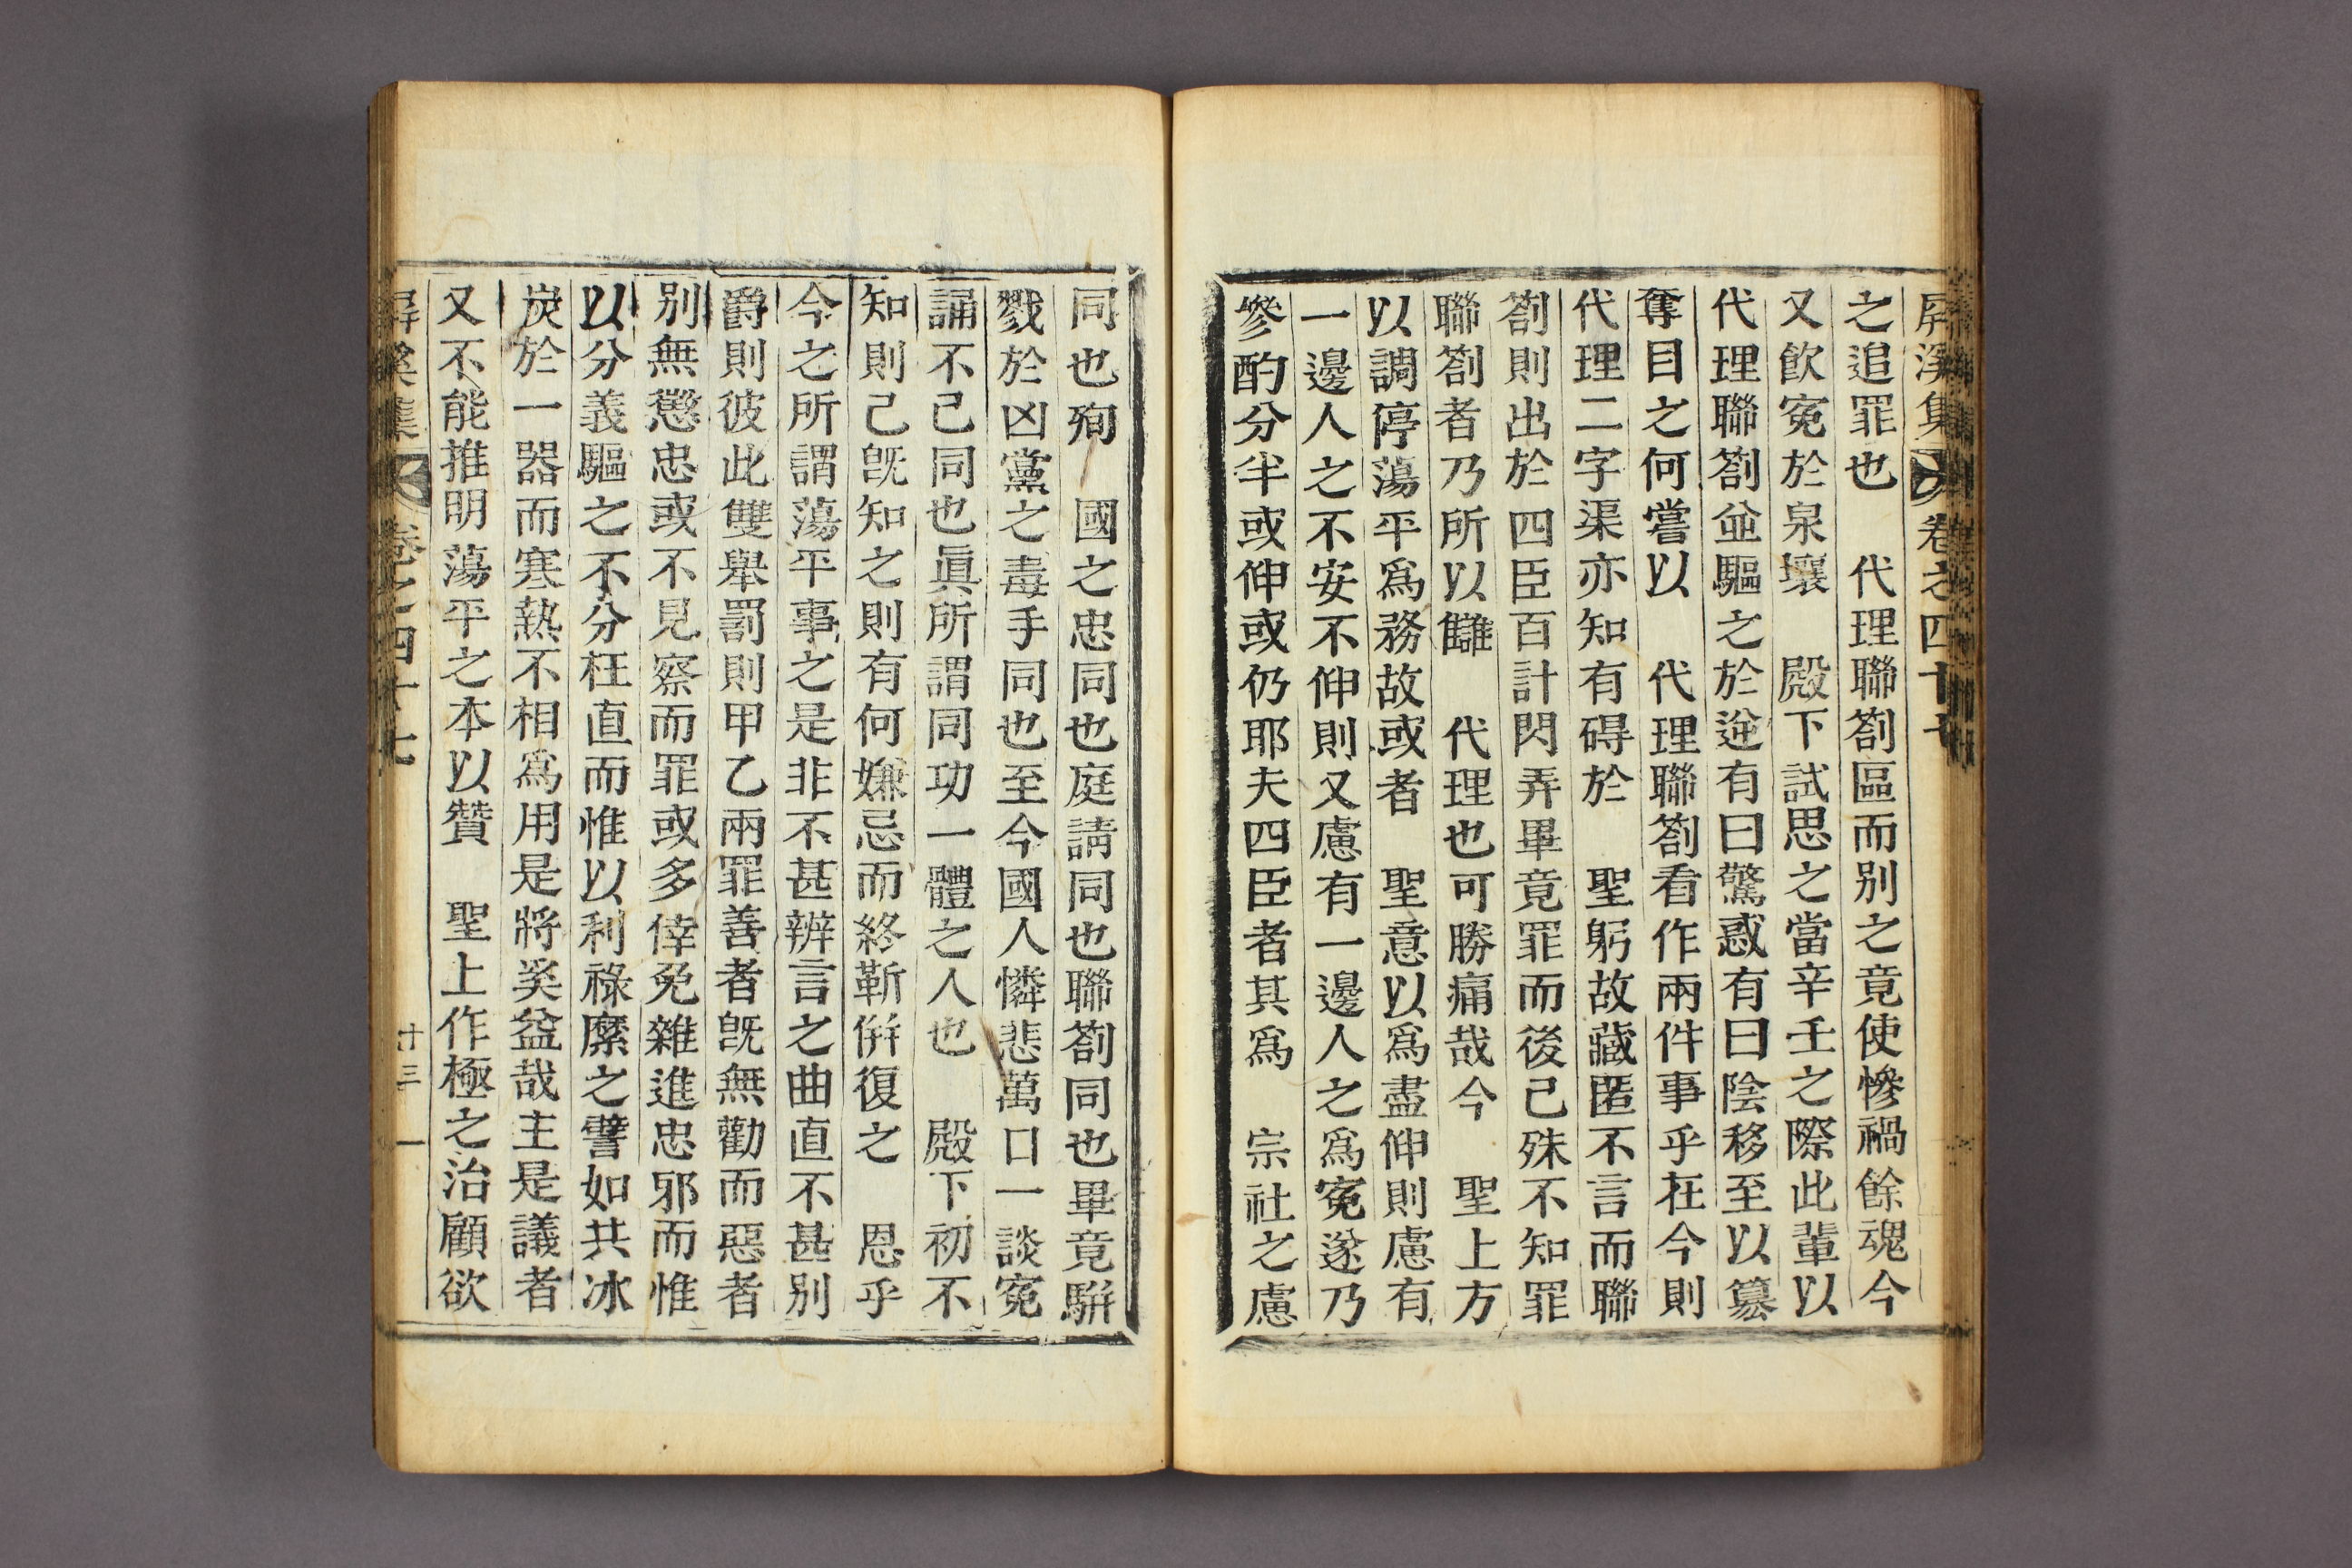 屛溪集 卷之四十七
之追罪也 代理聯劄區而別之竟使慘禍餘魂今
又飮寃於泉壤 殿下試思之當辛壬之際此輩以
代理聯劄並驅之於逆有曰驚惑有曰陰移至以簒
奪目之何嘗以 代理聯劄看作兩件事乎在今則
代理二字渠亦知有碍於 聖躬故藏匿不言而聯
劄則出於四臣百計閃弄畢竟罪而後已殊不知罪
聯劄者乃所以讎 代理也可勝痛哉今 聖上方
以調停蕩平爲務故或者 聖意以爲盡伸則慮有
一邊人之不安不伸則又慮有一邊人之爲寃遂乃
參酌分半或伸或仍耶夫四臣者其爲 宗社之慮
同也殉 國之忠同也庭請同也聯劄同也畢竟騈
戮於凶黨之毒手同也至今國人憐悲萬口一談寃
誦不已同也眞所謂同功一體之人也 殿下初不
知則已旣知之則有何嫌忌而終靳倂復之 恩乎
今之所謂蕩平事之是非不甚辨言之曲直不甚別
爵則彼此雙擧罰則甲乙兩罪善者旣無勸而惡者
別無懲忠或不見察而罪或多倖免雜進忠邪而惟
以分義驅之不分枉直而惟以利祿縻之譬如共冰
炭於一器而寒熱不相爲用是將奚益哉主是議者
又不能推明蕩平之本以贊 聖上作極之治顧欲
屛溪集 卷之四十七 廿三